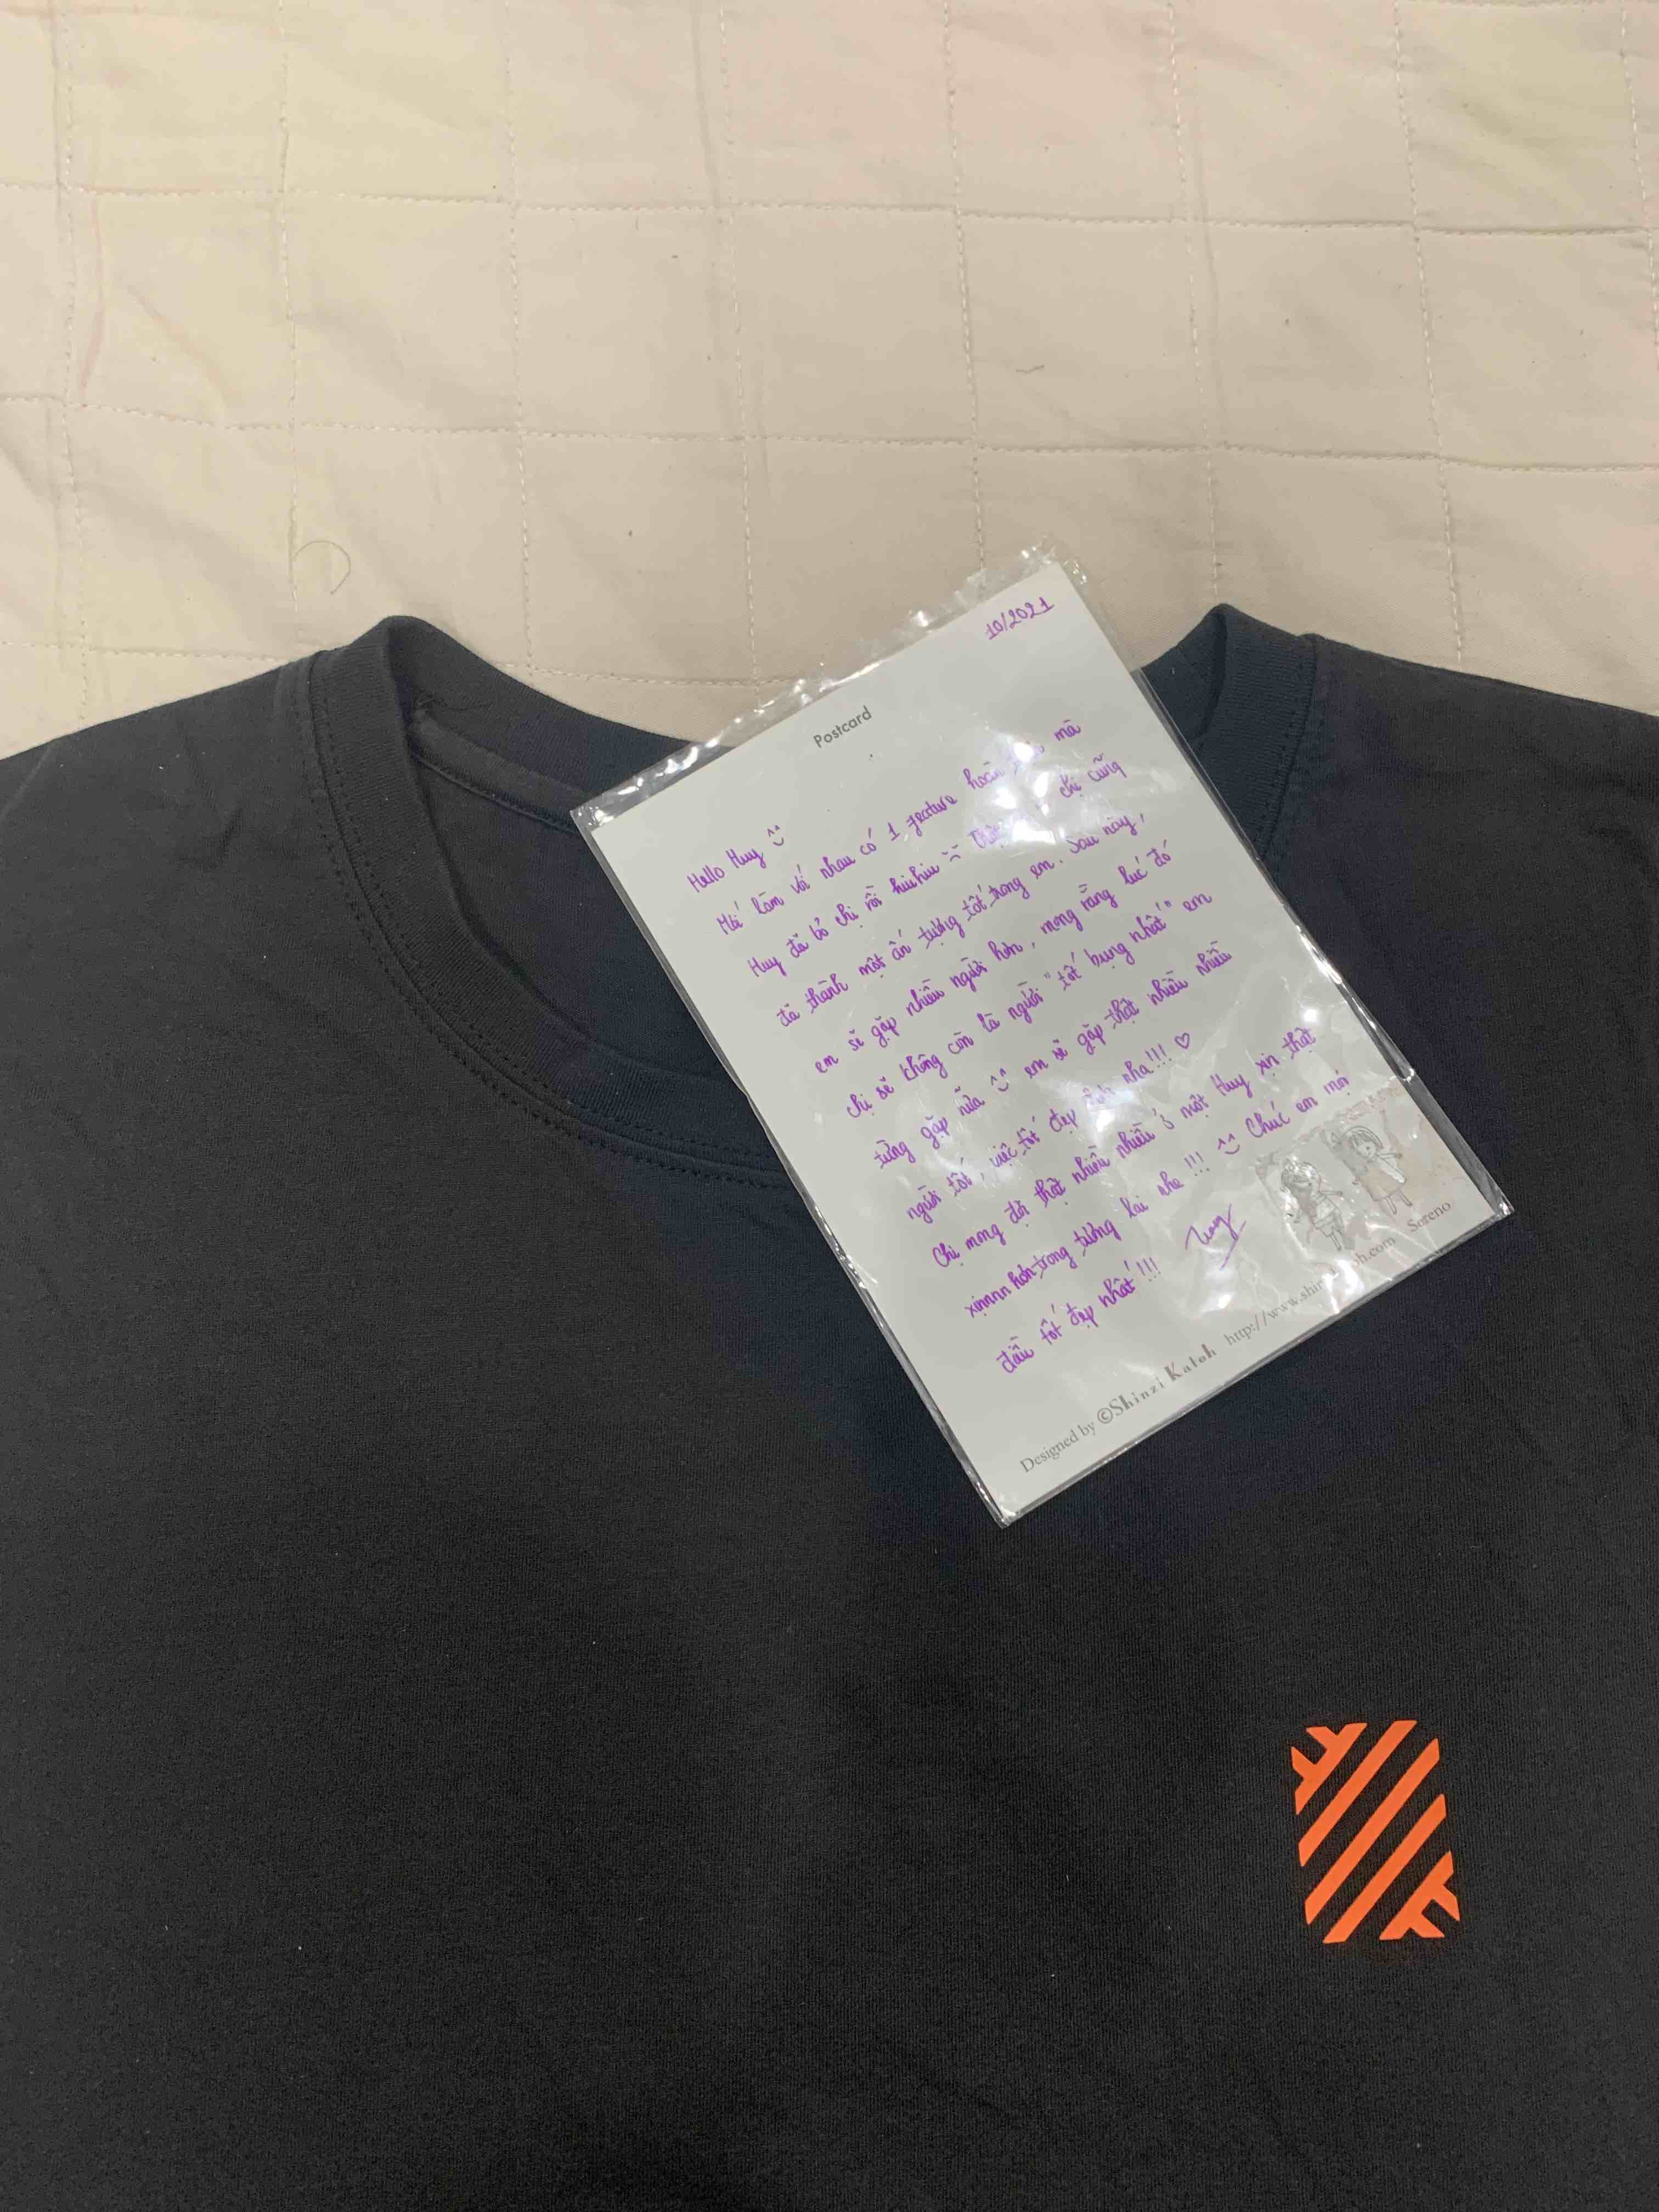 10/2021
Postcard
Hello Huy ^^
Mới làm với nhau có 1 feature hoàn mà
Huy đã bỏ chị rồi hiuhiu chị cũng
đã thành một ấn tượng tốt trong em. Sau này,
em sẽ gặp nhiều người hơn, mong rằng lúc đó
chị sẽ không còn là người "tốt bụng nhất" em
từng gặp nữa ^^ em sẽ gặp thật nhiều nhiều
người tốt, việc tốt đẹp nha!!! ♡
Chị mong đợi thật nhiều nhiều ở một Huy xịn thật
xịnnnn hơn trong tương lai nhe!!! ^^ Chúc em mọi
điều tốt đẹp nhất!!!
Designed by ©Shinzi Katoh http://www.shinzikatoh.com Sereno